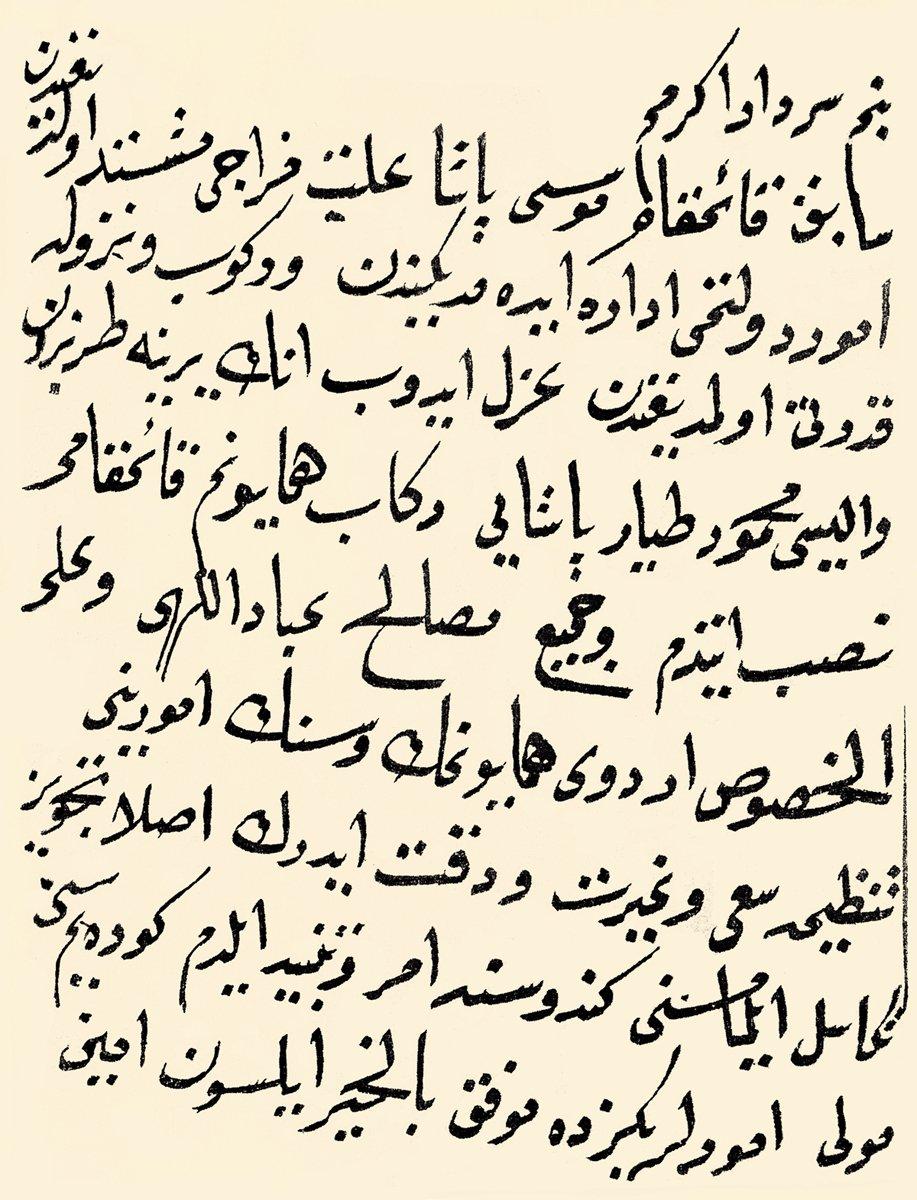 بنم سردار اكرمم
سابق قائمقام موسى پاشا علیت مزاجى مشتد اولدیغندن
امور دولتمى اداره ایده مدیكندن و ركوب و نزوله
قدرتى اولمدیغندن عزل ایدوب انك یرینه طربزون
والیسى محمود طیار پاشایى ركاب همایونم قائمقامى
نصب ایتدم و جمیع مصالح عباد اللهى وعلى
الخصوص اردوى همایونمك و سنك امورینى
تنظیمه سعى و غیرت و دقت ایدرك اصلا تجویز
تكاسل ایلمامسنى كندوسنه امر و تنبیه ایلدم كوره یم سنى
مولى امورلریكزده موفق بالخیر ایلسون امین